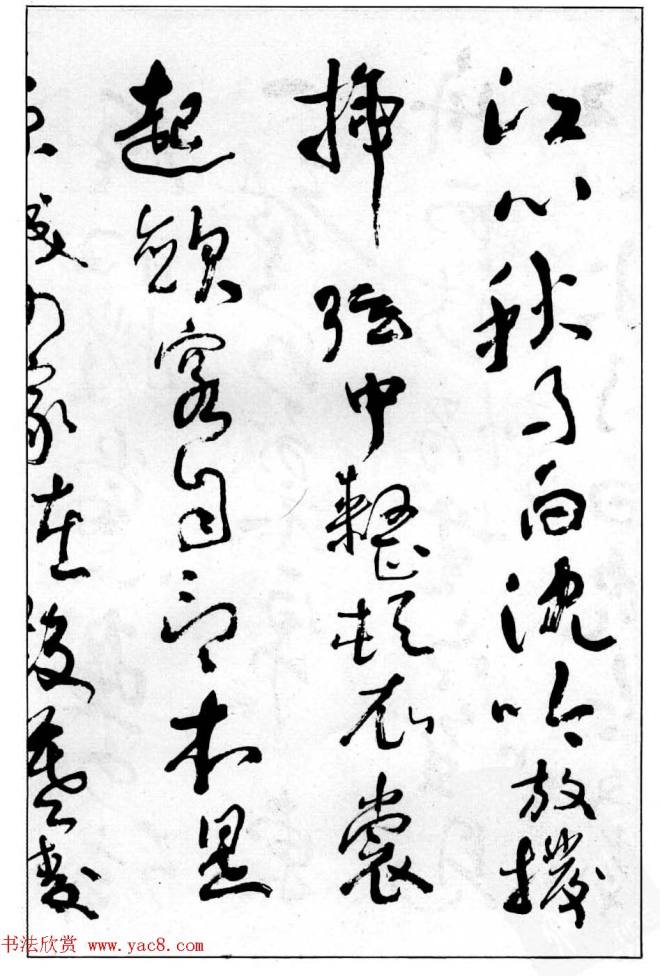 江心秋月白沈吟放撥
插弦中整頓衣裳
起斂容自言本是
京城女家在蝦蟇陵
书法欣赏 www.yac8.com